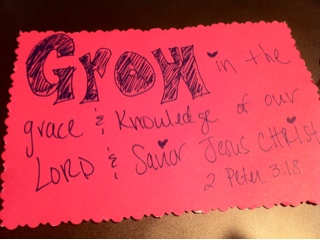 Grow in the
grace & Knowledge of our
LORD & Savior Jesus CHRist
2 Peter 3:18